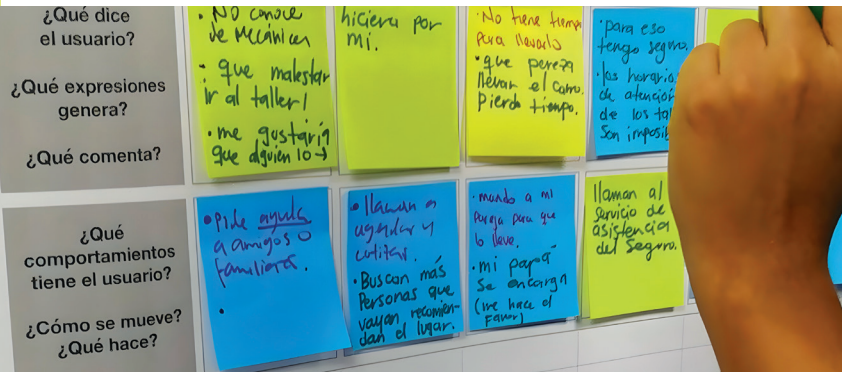 ¿Qué dice
el usuario?
¿Qué expresiones
genera?
¿Qué comenta?
• No conoce
de Mecánica
• que malestar
ir al taller!
• me gustaría
que alguien lo →
hiciera por
mi.
• No tiene tiempo
para llevarlo
• que pereza
llevar el carro.
Pierdo tiempo.
• para eso
tengo seguro.
• los horario
de atención
de los tal
son imposib
¿Qué
comportamientos
tiene el usuario?
¿Cómo se mueve?
¿Qué hace?
• Pide ayuda
a amigos o
familiares.
•
• llaman a
agendar y
cotizar.
• Buscan más
Personas que
vayan recomien-
dan el lugar.
• mando a mi
pareja para que
lo lleve.
• mi papá
se encarga
(me hace el
Favor)
llaman al
servicio de
asistencia
del Seguro.